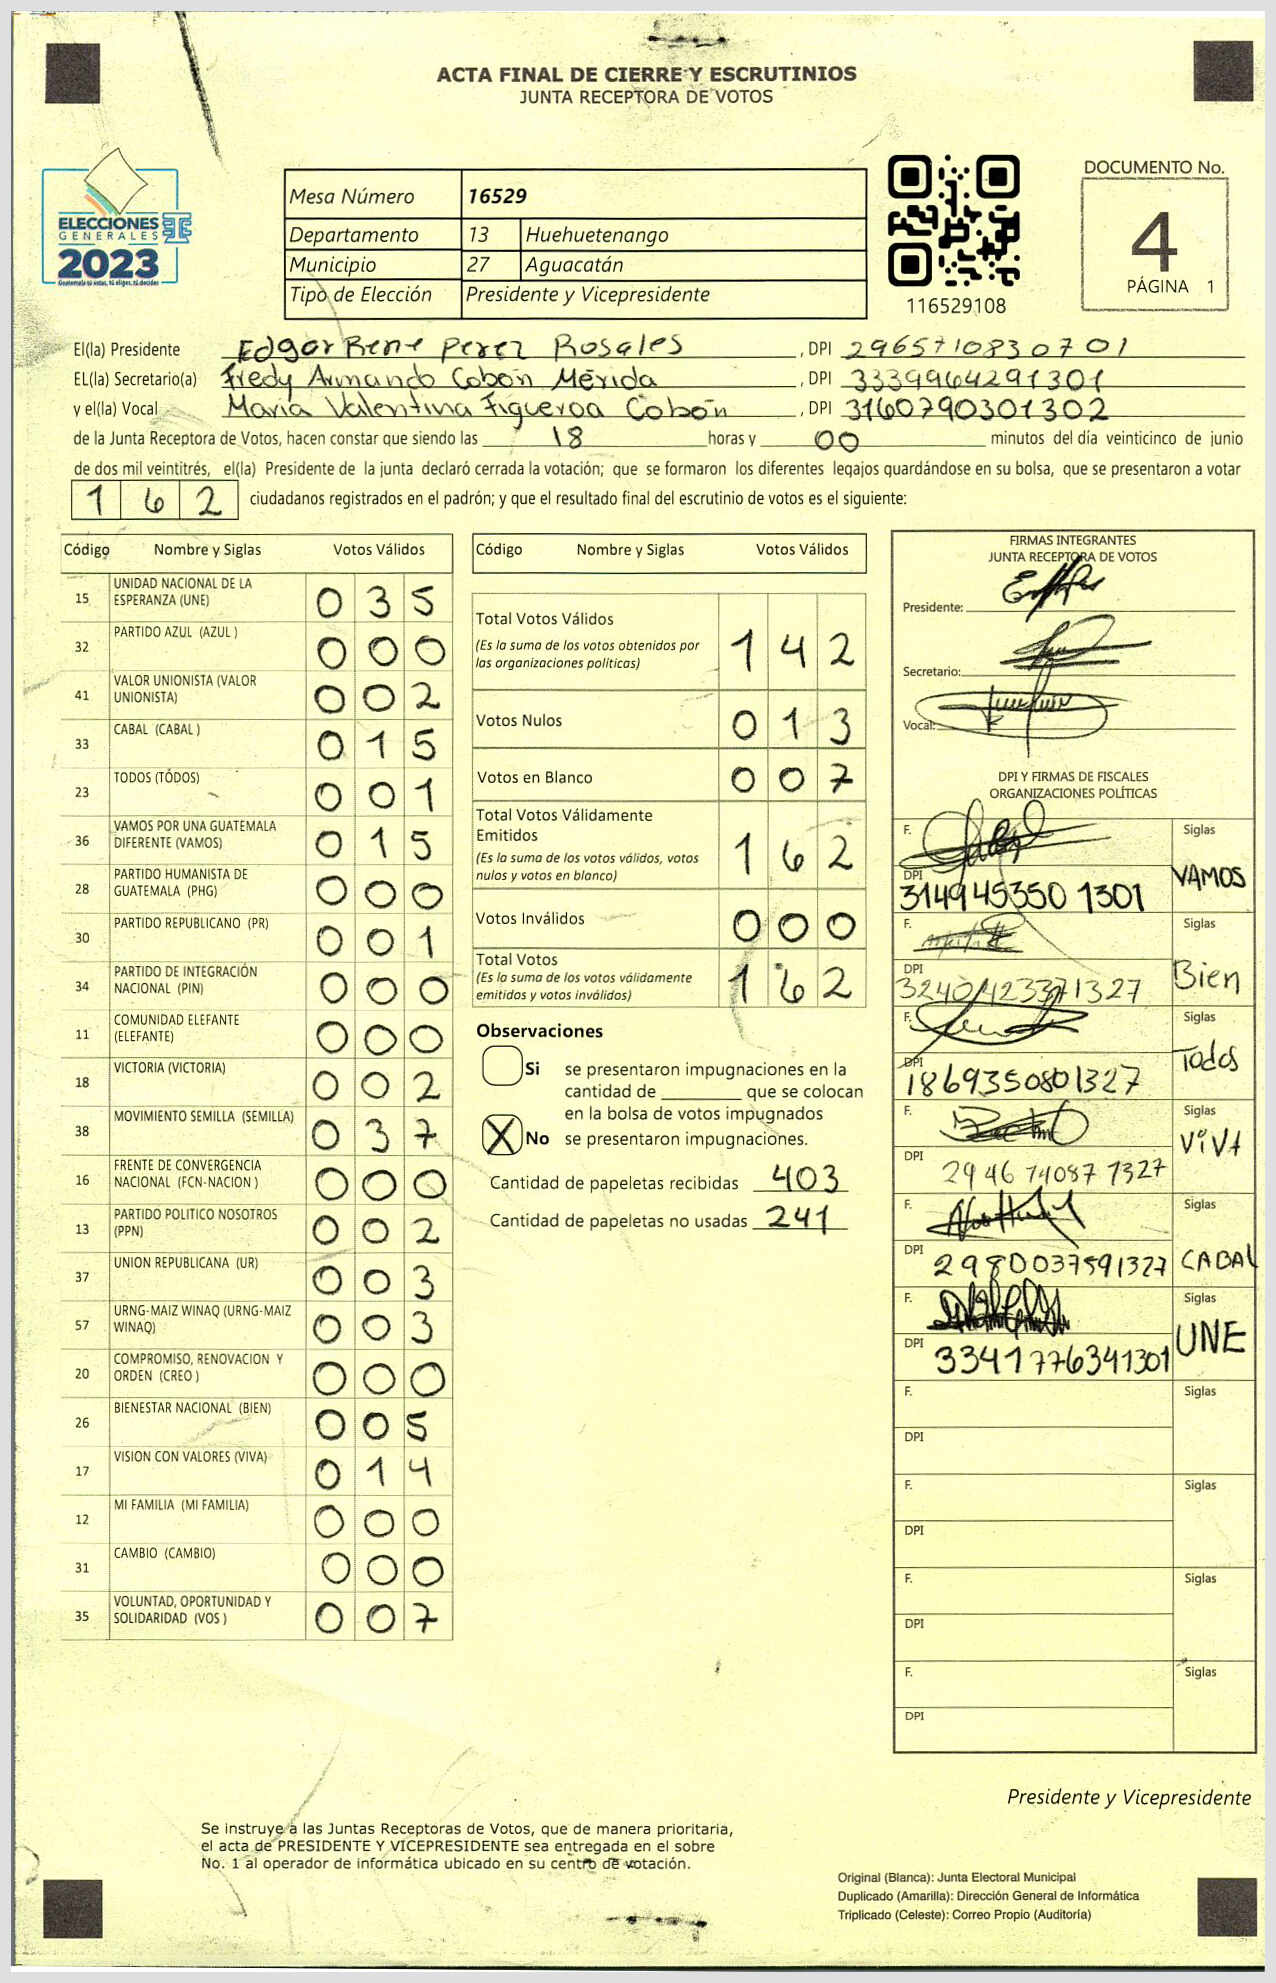 ACTA FINAL DE CIERRE Y ESCRUTINIOS
JUNTA RECEPTORA DE VOTOS
ELECCIONES
GENERALES
2023
Guatemala tú votas, tú eliges, tú decides
Mesa Número 16529
Departamento 13 Huehuetenango
Municipio 27 Aguacatán
Tipo de Elección Presidente y Vicepresidente
116529108
DOCUMENTO No.
4
PÁGINA 1
El(la) Presidente Edgar Rene Perez Rosales , DPI 2965710830701
EL(la) Secretario(a) Fredy Armando Cobón Mérida , DPI 3339964291301
y el(la) Vocal María Valentina Figueroa Cobón , DPI 3160790301302
de la Junta Receptora de Votos, hacen constar que siendo las 18 horas y 00 minutos del día veinticinco de junio
de dos mil veintitrés, el(la) Presidente de la junta declaró cerrada la votación; que se formaron los diferentes legajos guardándose en su bolsa, que se presentaron a votar
162 ciudadanos registrados en el padrón; y que el resultado final del escrutinio de votos es el siguiente:
Código Nombre y Siglas Votos Válidos
15 UNIDAD NACIONAL DE LA ESPERANZA (UNE) 035
32 PARTIDO AZUL (AZUL ) 000
41 VALOR UNIONISTA (VALOR UNIONISTA) 002
33 CABAL (CABAL ) 015
23 TODOS (TÓDOS) 001
36 VAMOS POR UNA GUATEMALA DIFERENTE (VAMOS) 015
28 PARTIDO HUMANISTA DE GUATEMALA (PHG) 000
30 PARTIDO REPUBLICANO (PR) 001
34 PARTIDO DE INTEGRACIÓN NACIONAL (PIN) 000
11 COMUNIDAD ELEFANTE (ELEFANTE) 000
18 VICTORIA (VICTORIA) 002
38 MOVIMIENTO SEMILLA (SEMILLA) 037
16 FRENTE DE CONVERGENCIA NACIONAL (FCN-NACION ) 000
13 PARTIDO POLITICO NOSOTROS (PPN) 002
37 UNION REPUBLICANA (UR) 003
57 URNG-MAIZ WINAQ (URNG-MAIZ WINAQ) 003
20 COMPROMISO, RENOVACION Y ORDEN (CREO ) 000
26 BIENESTAR NACIONAL (BIEN) 005
17 VISION CON VALORES (VIVA) 014
12 MI FAMILIA (MI FAMILIA) 000
31 CAMBIO (CAMBIO) 000
35 VOLUNTAD, OPORTUNIDAD Y SOLIDARIDAD (VOS ) 007
Código Nombre y Siglas Votos Válidos
Total Votos Válidos 142
(Es la suma de los votos obtenidos por
las organizaciones políticas)
Votos Nulos 013
Votos en Blanco 007
Total Votos Válidamente
Emitidos 162
(Es la suma de los votos válidos, votos
nulos y votos en blanco)
Votos Inválidos 000
Total Votos 162
(Es la suma de los votos válidamente
emitidos y votos inválidos)
Observaciones
Si se presentaron impugnaciones en la
cantidad de ________ que se colocan
en la bolsa de votos impugnados
X No se presentaron impugnaciones.
Cantidad de papeletas recibidas 403
Cantidad de papeletas no usadas 241
FIRMAS INTEGRANTES
JUNTA RECEPTORA DE VOTOS
Presidente:
Secretario:
Vocal:
DPI Y FIRMAS DE FISCALES
ORGANIZACIONES POLÍTICAS
F. Siglas VAMOS
DPI 3149453501301
F. Siglas Bien
DPI
F. Siglas Todos
DPI 1869350801327
F. Siglas ViVA
DPI 2946740871327
F. Siglas CABAL
DPI 2980037591327
F. Siglas UNE
DPI 3341776341301
F. Siglas
DPI
F. Siglas
DPI
F. Siglas
DPI
F. Siglas
DPI
Presidente y Vicepresidente
Se instruye a las Juntas Receptoras de Votos, que de manera prioritaria,
el acta de PRESIDENTE Y VICEPRESIDENTE sea entregada en el sobre
No. 1 al operador de informática ubicado en su centro de votación.
Original (Blanca): Junta Electoral Municipal
Duplicado (Amarilla): Dirección General de Informática
Triplicado (Celeste): Correo Propio (Auditoría)